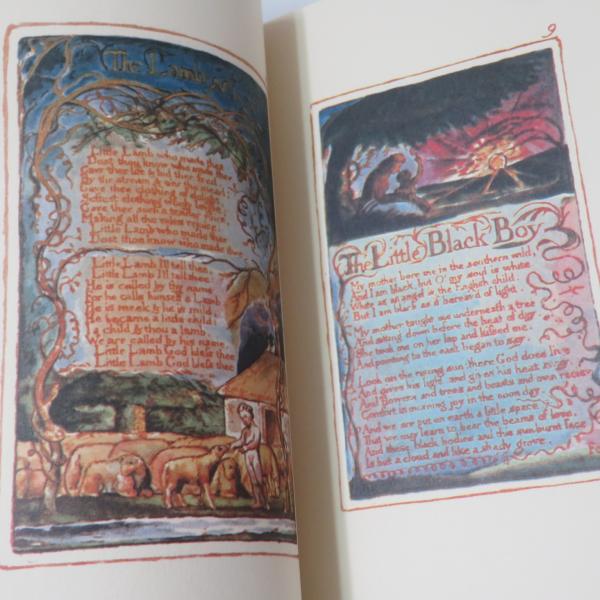 The Lamb
Little Lamb who made thee
Dost thou know who made thee
Gave thee life & bid thee feed
By the stream & o'er the mead;
Gave thee clothing of delight,
Softest clothing wooly bright;
Gave thee such a tender voice,
Making all the vales rejoice:
Little Lamb who made thee
Dost thou know who made thee
Little Lamb I'll tell thee,
Little Lamb I'll tell thee;
He is called by thy name,
For he calls himself a Lamb:
He is meek & he is mild,
He became a little child:
I a child & thou a lamb,
We are called by his name.
Little Lamb God bless thee
Little Lamb God bless thee
9
The Little Black Boy
My mother bore me in the southern wild,
And I am black, but O! my soul is white
White as an angel is the English child:
But I am black as if bereav'd of light.
My mother taught me underneath a tree
And sitting down before the heat of day
She took me on her lap and kissed me,
And pointing to the east began to say.
Look on the rising sun: there God does live
And gives his light, and gives his heat away
And flowers and trees and beasts and men recieve
Comfort in morning joy in the noon day.
And we are put on earth a little space,
That we may learn to bear the beams of love,
And these black bodies and this sun-burnt face
Is but a cloud, and like a shady grove.